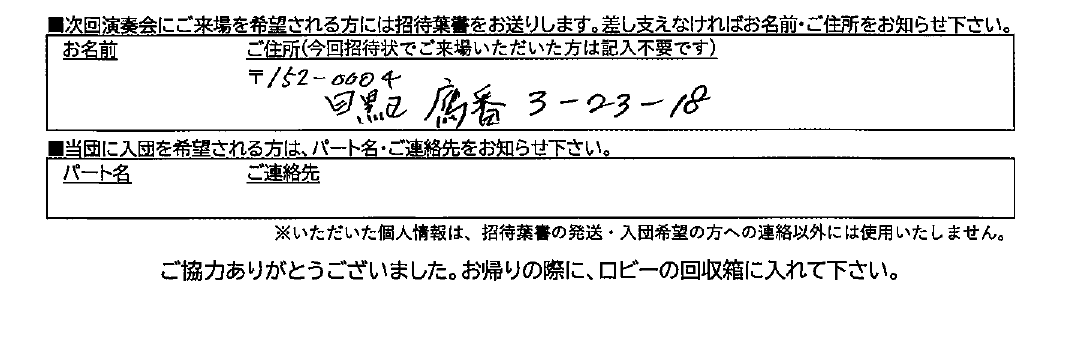 ■次回演奏会にご来場を希望される方には招待葉書をお送りします。差し支えなければお名前・ご住所をお知らせ下さい。
お名前 ご住所(今回招待状でご来場いただいた方は記入不要です)
〒152-0004
目黒区 鷹番 3-23-18
■当団に入団を希望される方は、パート名・ご連絡先をお知らせ下さい。
パート名 ご連絡先
※いただいた個人情報は、招待葉書の発送・入団希望の方への連絡以外には使用いたしません。
ご協力ありがとうございました。お帰りの際に、ロビーの回収箱に入れて下さい。